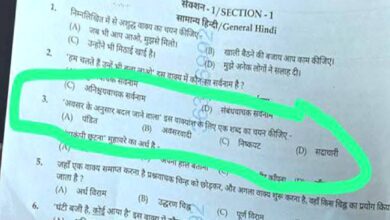 संक्शन - 1/SECTION - 1
सामान्य हिन्दी/General Hindi
1. निम्नलिखित में से अशुद्ध वाक्य का चयन कीजिए -
(A) जब भी आप आओ, मुझसे मिलो।
(B) खाली बैठने की बजाय आप काम कीजिए।
(C) उन्होंने भी मिठाई खाई है।
(D) मुझे अनेक लोगों ने सलाह दी।
2. हम चलते हैं उन्हें भी
इस वाक्य में कौन-सा सर्वनाम है ?
सर्वनाम
(C) अनिश्चयवाचक सर्वनाम
(D) संबंधवाचक सर्वनाम
3. 'अवसर के अनुसार बदल जाने वाला' इस वाक्यांश के लिए एक शब्द का चयन कीजिए -
(A) पंडित
(B) अवसरवादी
(C) निष्कपट
(D) सदाचारी
छूटना' मुहावरे का अर्थ है -
(B) अपनी हालत बताना
5. जहाँ एक वाक्य समाप्त करना है प्रश्नवाचक चिन्ह को छोड़कर, और अगला वाक्य शुरू करना है, वहाँ किस चिह्न का प्रयोग किया
(A) अर्ध विराम
(B) उद्धरण चिह्न
(C) पूर्ण विराम
6. 'घंटी बजी है, कोई आया है' इस वाक्य में